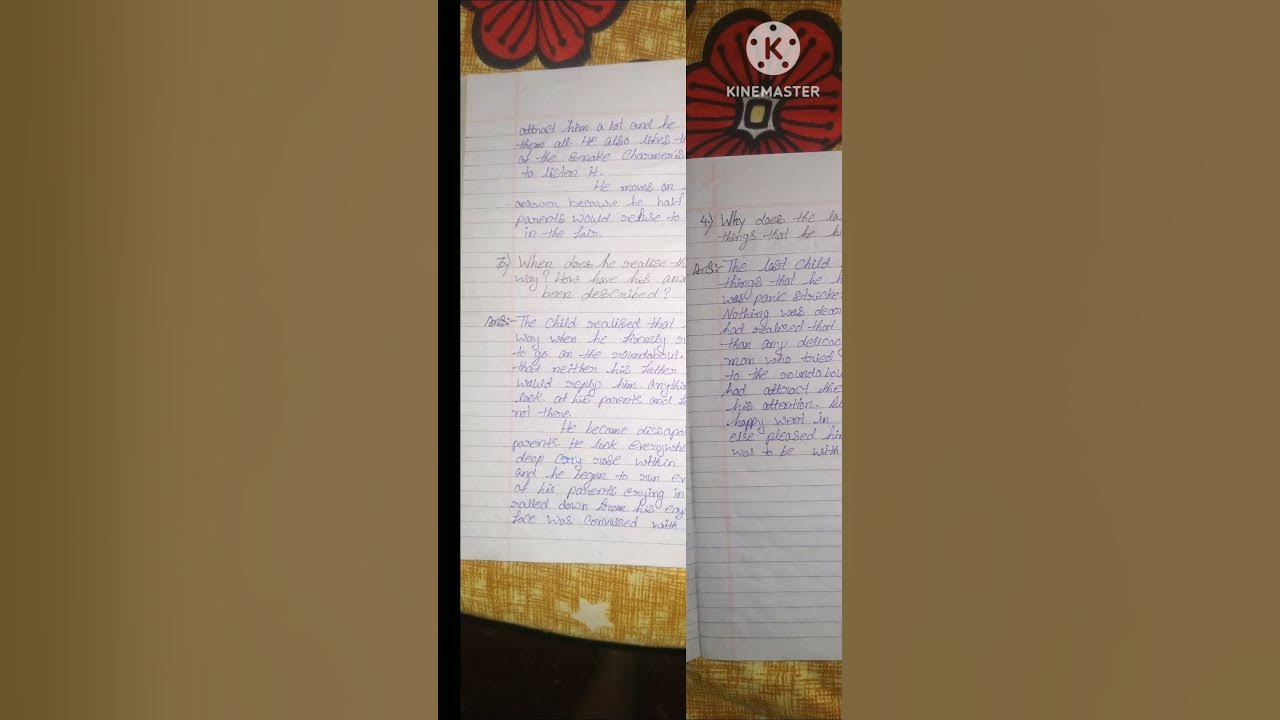 attract him a lot and he
them all. He also likes t
of the snake Charmer's
to listen it.
He moves on
answer because he half
parents would refuse to
in the fair.
3.) When does he realise th
way? How have his anx
been described?
Ans:- The child realised that
way when he
to go on the roundabout.
that neither his father
would reply him anythi
look at his parents and
not there.
He become
parents. He look everywhe
deep cry rose within
and he began to run
of his parents crying in
rolled down from his
face was convulsed with
K
KINEMASTER
4.) Why does the lo
things that he h
Ans:- The lost child
things that he h
was panic stricke
Nothing was dear
had realised that
than any delicac
man who tried
to the roundabou
had attract the
his attention.
happy went in
else pleased him
was to be with